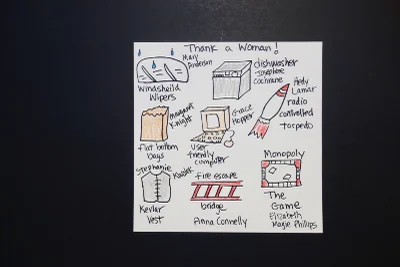 Thank a Woman!
Mary
Anderson
Windsheild
Wipers
dishwasher
Josephine
Cochrane
Hedy
Lamar
radio
controlled
torpedo
Margaret
Knight
flat bottom
bags
Grace
Hopper
user
friendly
computer
Stephanie
Kwolek
Kevlar
Vest
fire escape
bridge
Anna Connelly
Monopoly
The
Game
Elizabeth
Magie Phillips